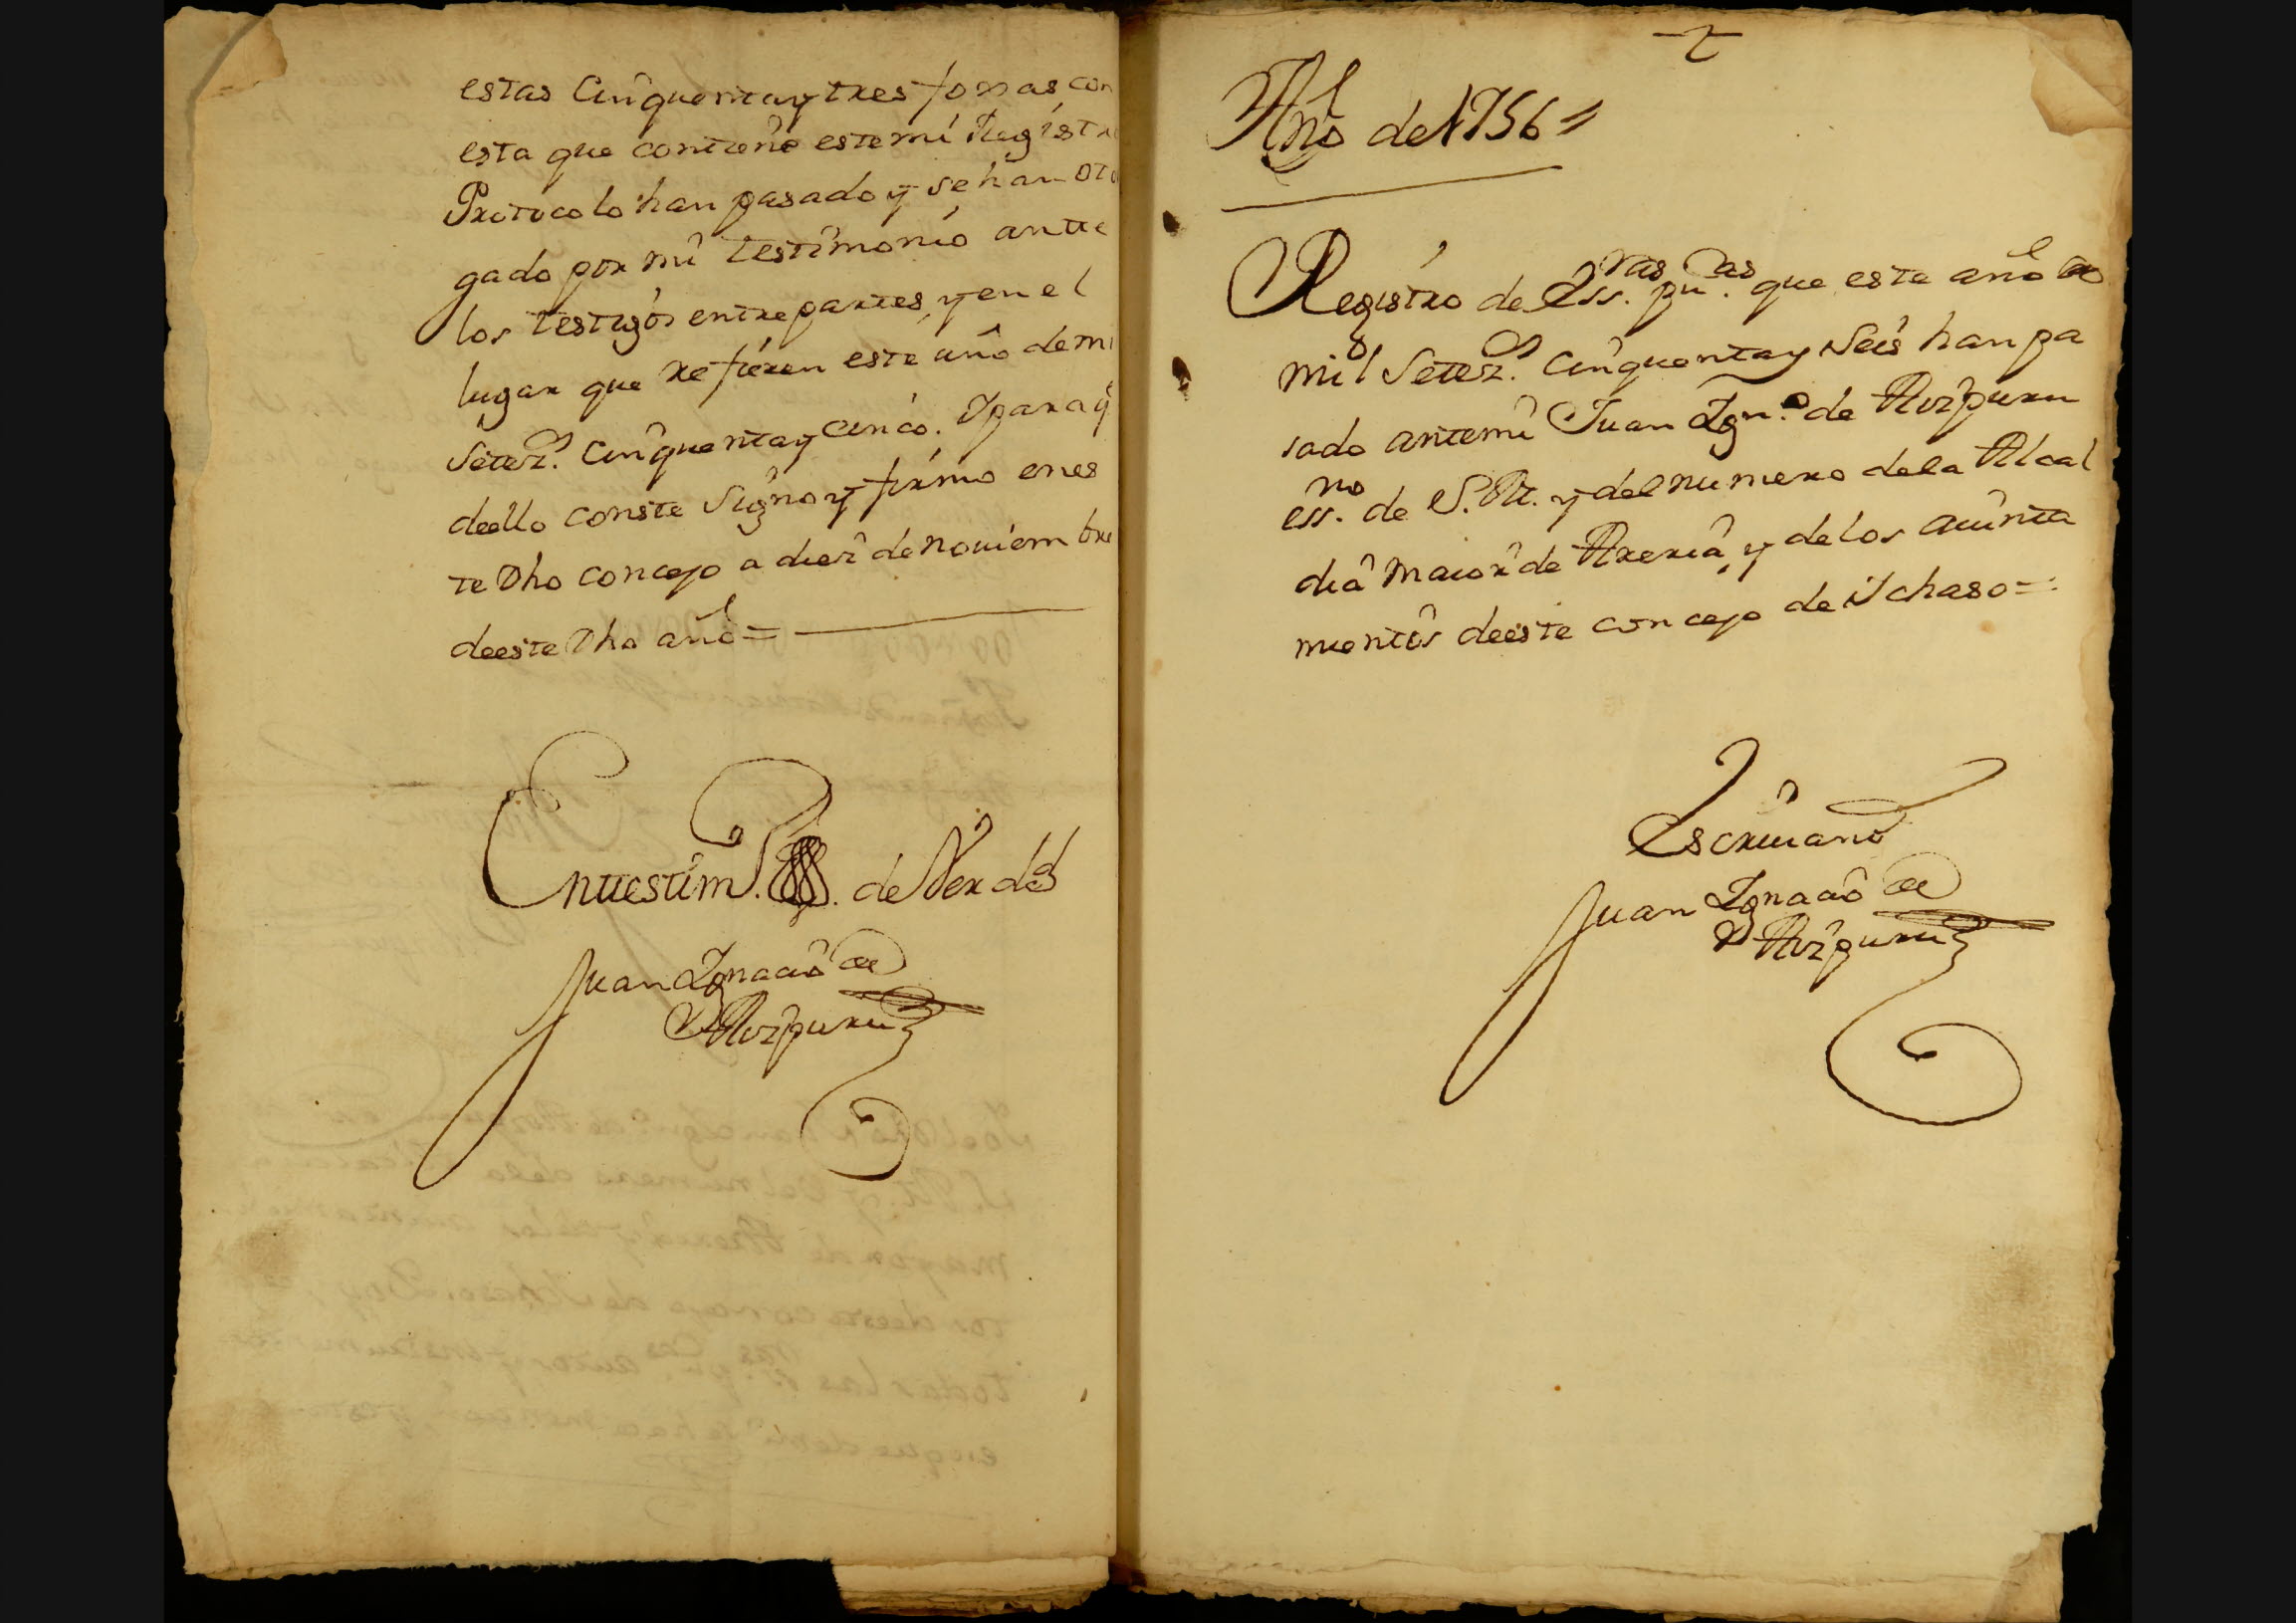 estas Cinquenta y tres fojas con
esta que contiene este mi Regístr
Protocolo han pasado y se han oto
gado por mi testimonio ante
los testigos entre partes, y en el
lugar que refieren este año de mi
Setez.s Cinquenta y cinco. Y para q̃
dello conste Signo y firmo en es
te Dho concejo a diez de Noviembre
deeste Dho año =
En testim.o de Verdad
Juan Ignacio de
Aizpuru
Año de 1756 =
Registro de Ess.ras pu.cas que este año de
mil Setez.s Cinquenta y Seis han pa
sado ante mi Juan Ign.o de Aizpuru
ess.no de S. M. y del numero dela Alcal
dia Maior de Areria, y delos aiunta
mientos deeste concejo de Ychaso =
Escriuano
Juan Ignacio de
Aizpuru